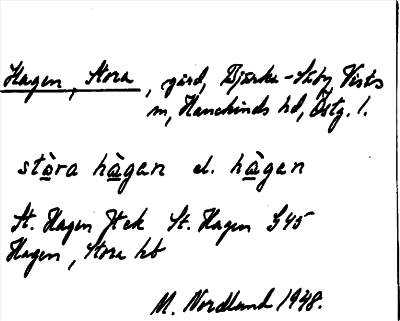 Hagen, Stora, gård, Bjärka-Säby Vists
m, Hanekinds hd, Östg. l.
stòra hàgen el. hàgen
St. Hagen Jtek St. Hagen G45
Hagen, Stora hb
M. Nordlund 1948.